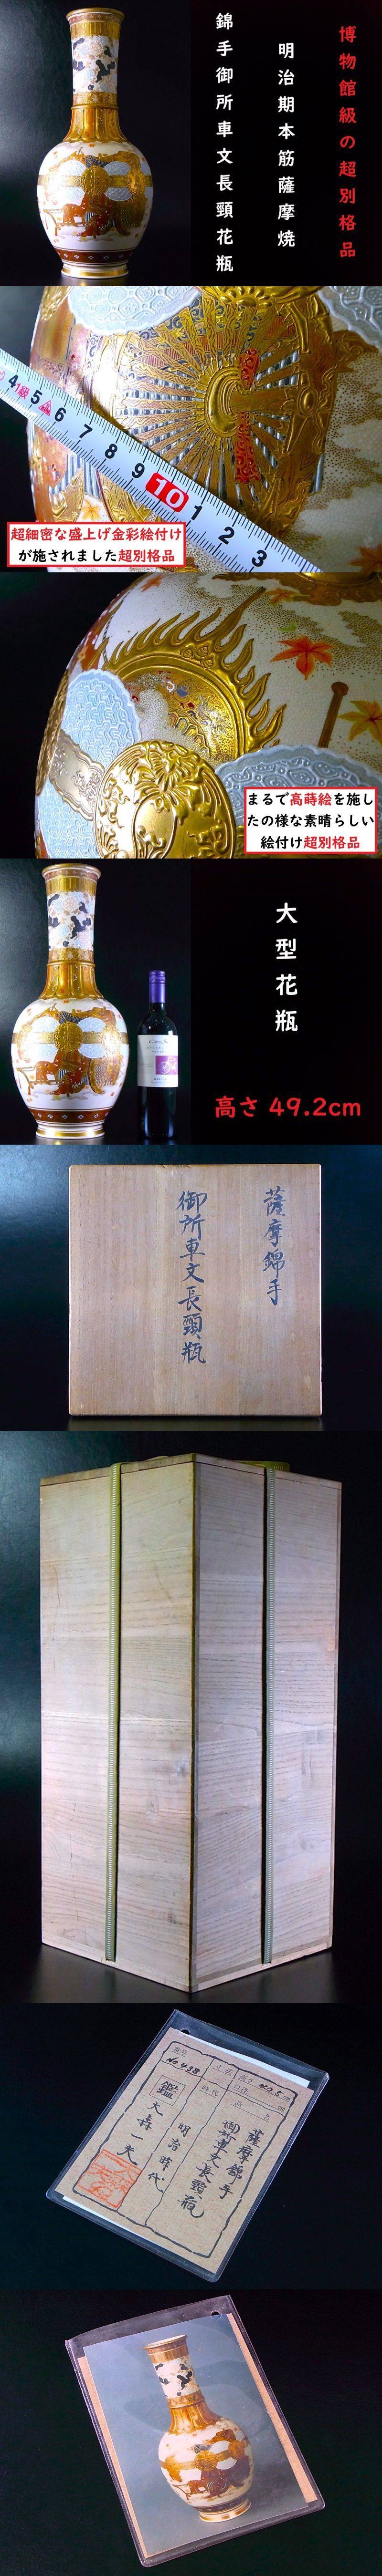 博物館級の超別格品
明治期本筋薩摩焼
錦手御所車文長頸花瓶
4 1級 5 6 7 8 9 10 1 2 3
超細密な盛上げ金彩絵付け
が施されました超別格品
まるで高蒔絵を施し
たの様な素晴らしい
絵付け超別格品
大型花瓶
高さ 49.2cm
薩摩錦手
御所車文長頸瓶
No 438
時代
品名
薩摩錦手
御所車文長頸瓶
明治時代
鑑